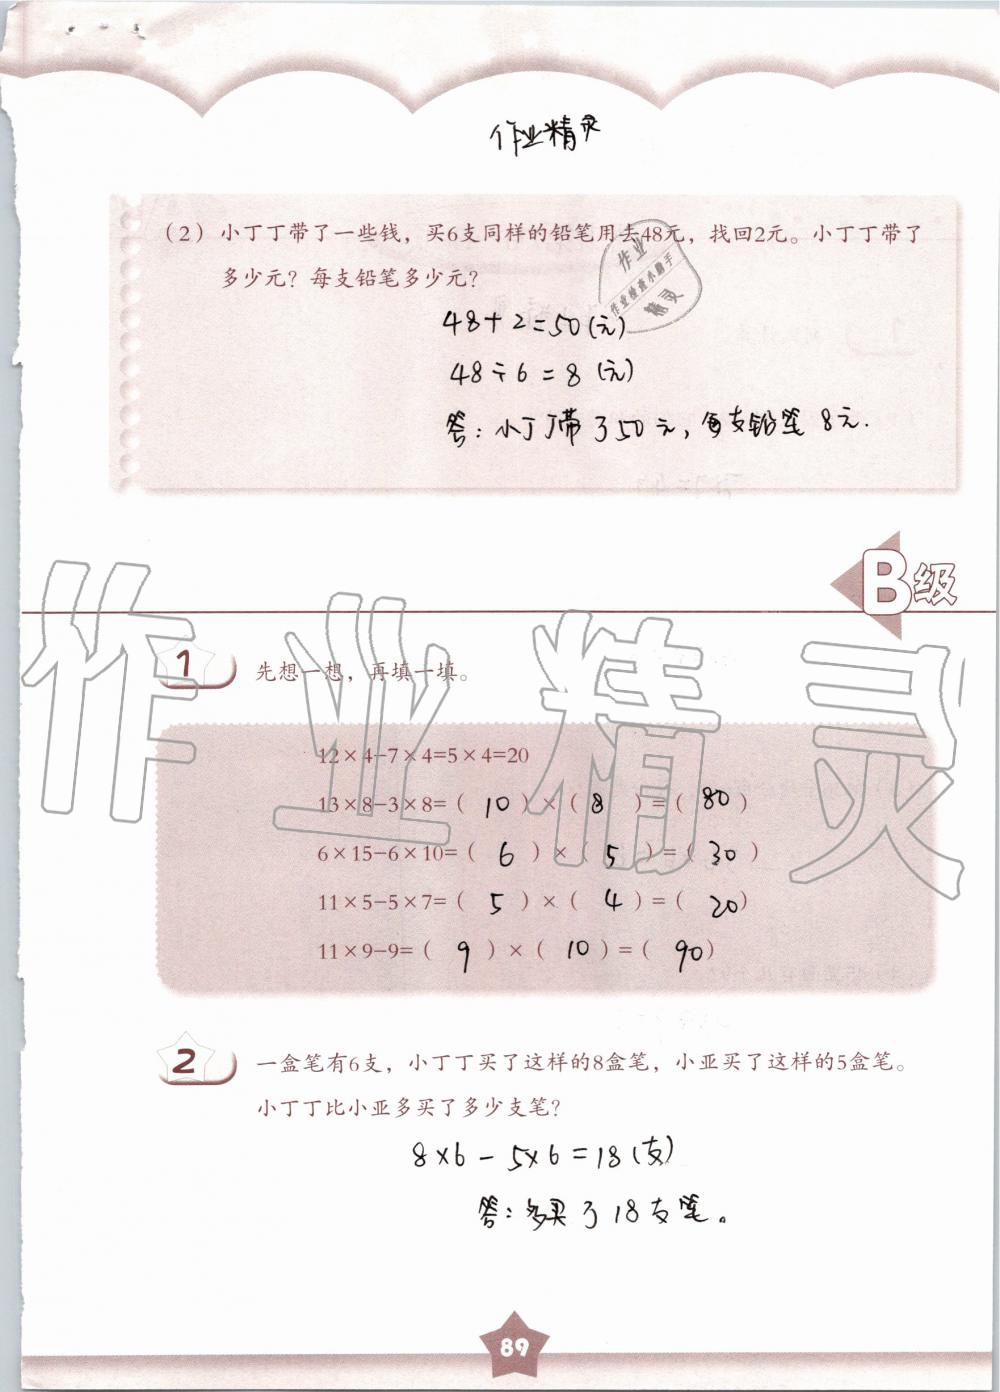 作业精灵
（2）小丁丁带了一些钱，买6支同样的铅笔用去48元，找回2元。小丁丁带了
多少元？每支铅笔多少元？
作业
作业检查小助手
精灵
48+2=50(元)
48÷6=8(元)
答：小丁丁带了50元，每支铅笔8元.
B级
作业精灵
1 先想一想，再填一填。
12×4-7×4=5×4=20
13×8-3×8=（10）×（8）=（80）
6×15-6×10=（6）×（5）=（30）
11×5-5×7=（5）×（4）=（20）
11×9-9=（9）×（10）=（90）
2 一盒笔有6支，小丁丁买了这样的8盒笔，小亚买了这样的5盒笔。
小丁丁比小亚多买了多少支笔？
8×6-5×6=18(支)
答：多买了18支笔。
89